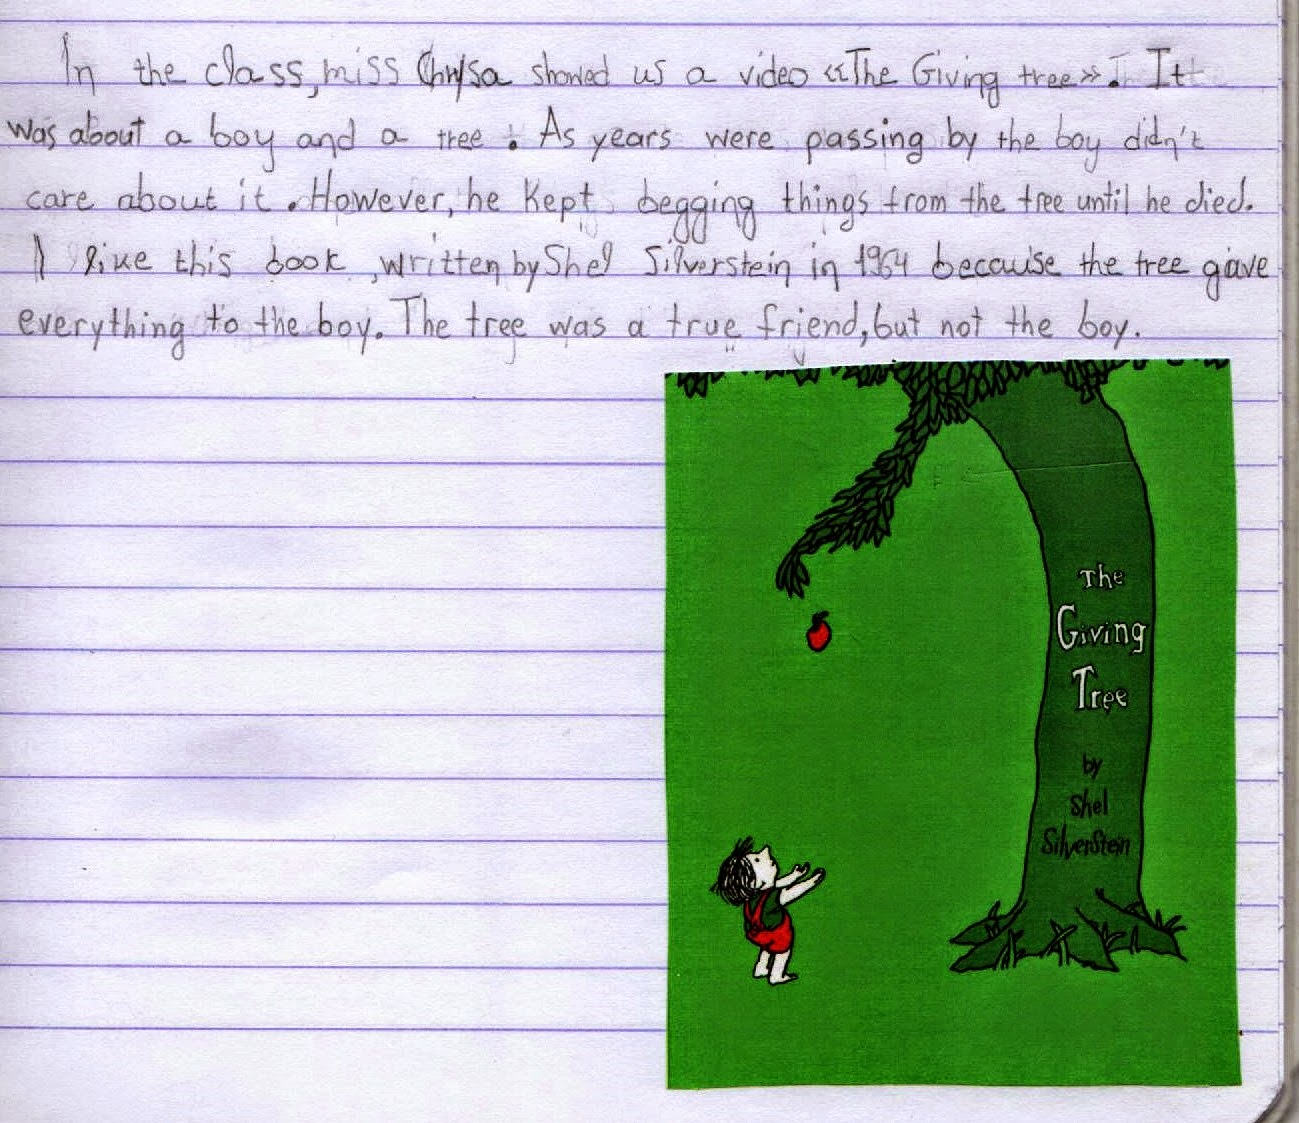 In the class, miss Chrysa showed us a video «The Giving tree». It
was about a boy and a tree. As years were passing by the boy didn't
care about it. However, he kept begging things from the tree until he died.
I like this book, written by Shel Silverstein in 1964 because the tree gave
everything to the boy. The tree was a true friend, but not the boy.
The
Giving
Tree
by
Shel
Silverstein